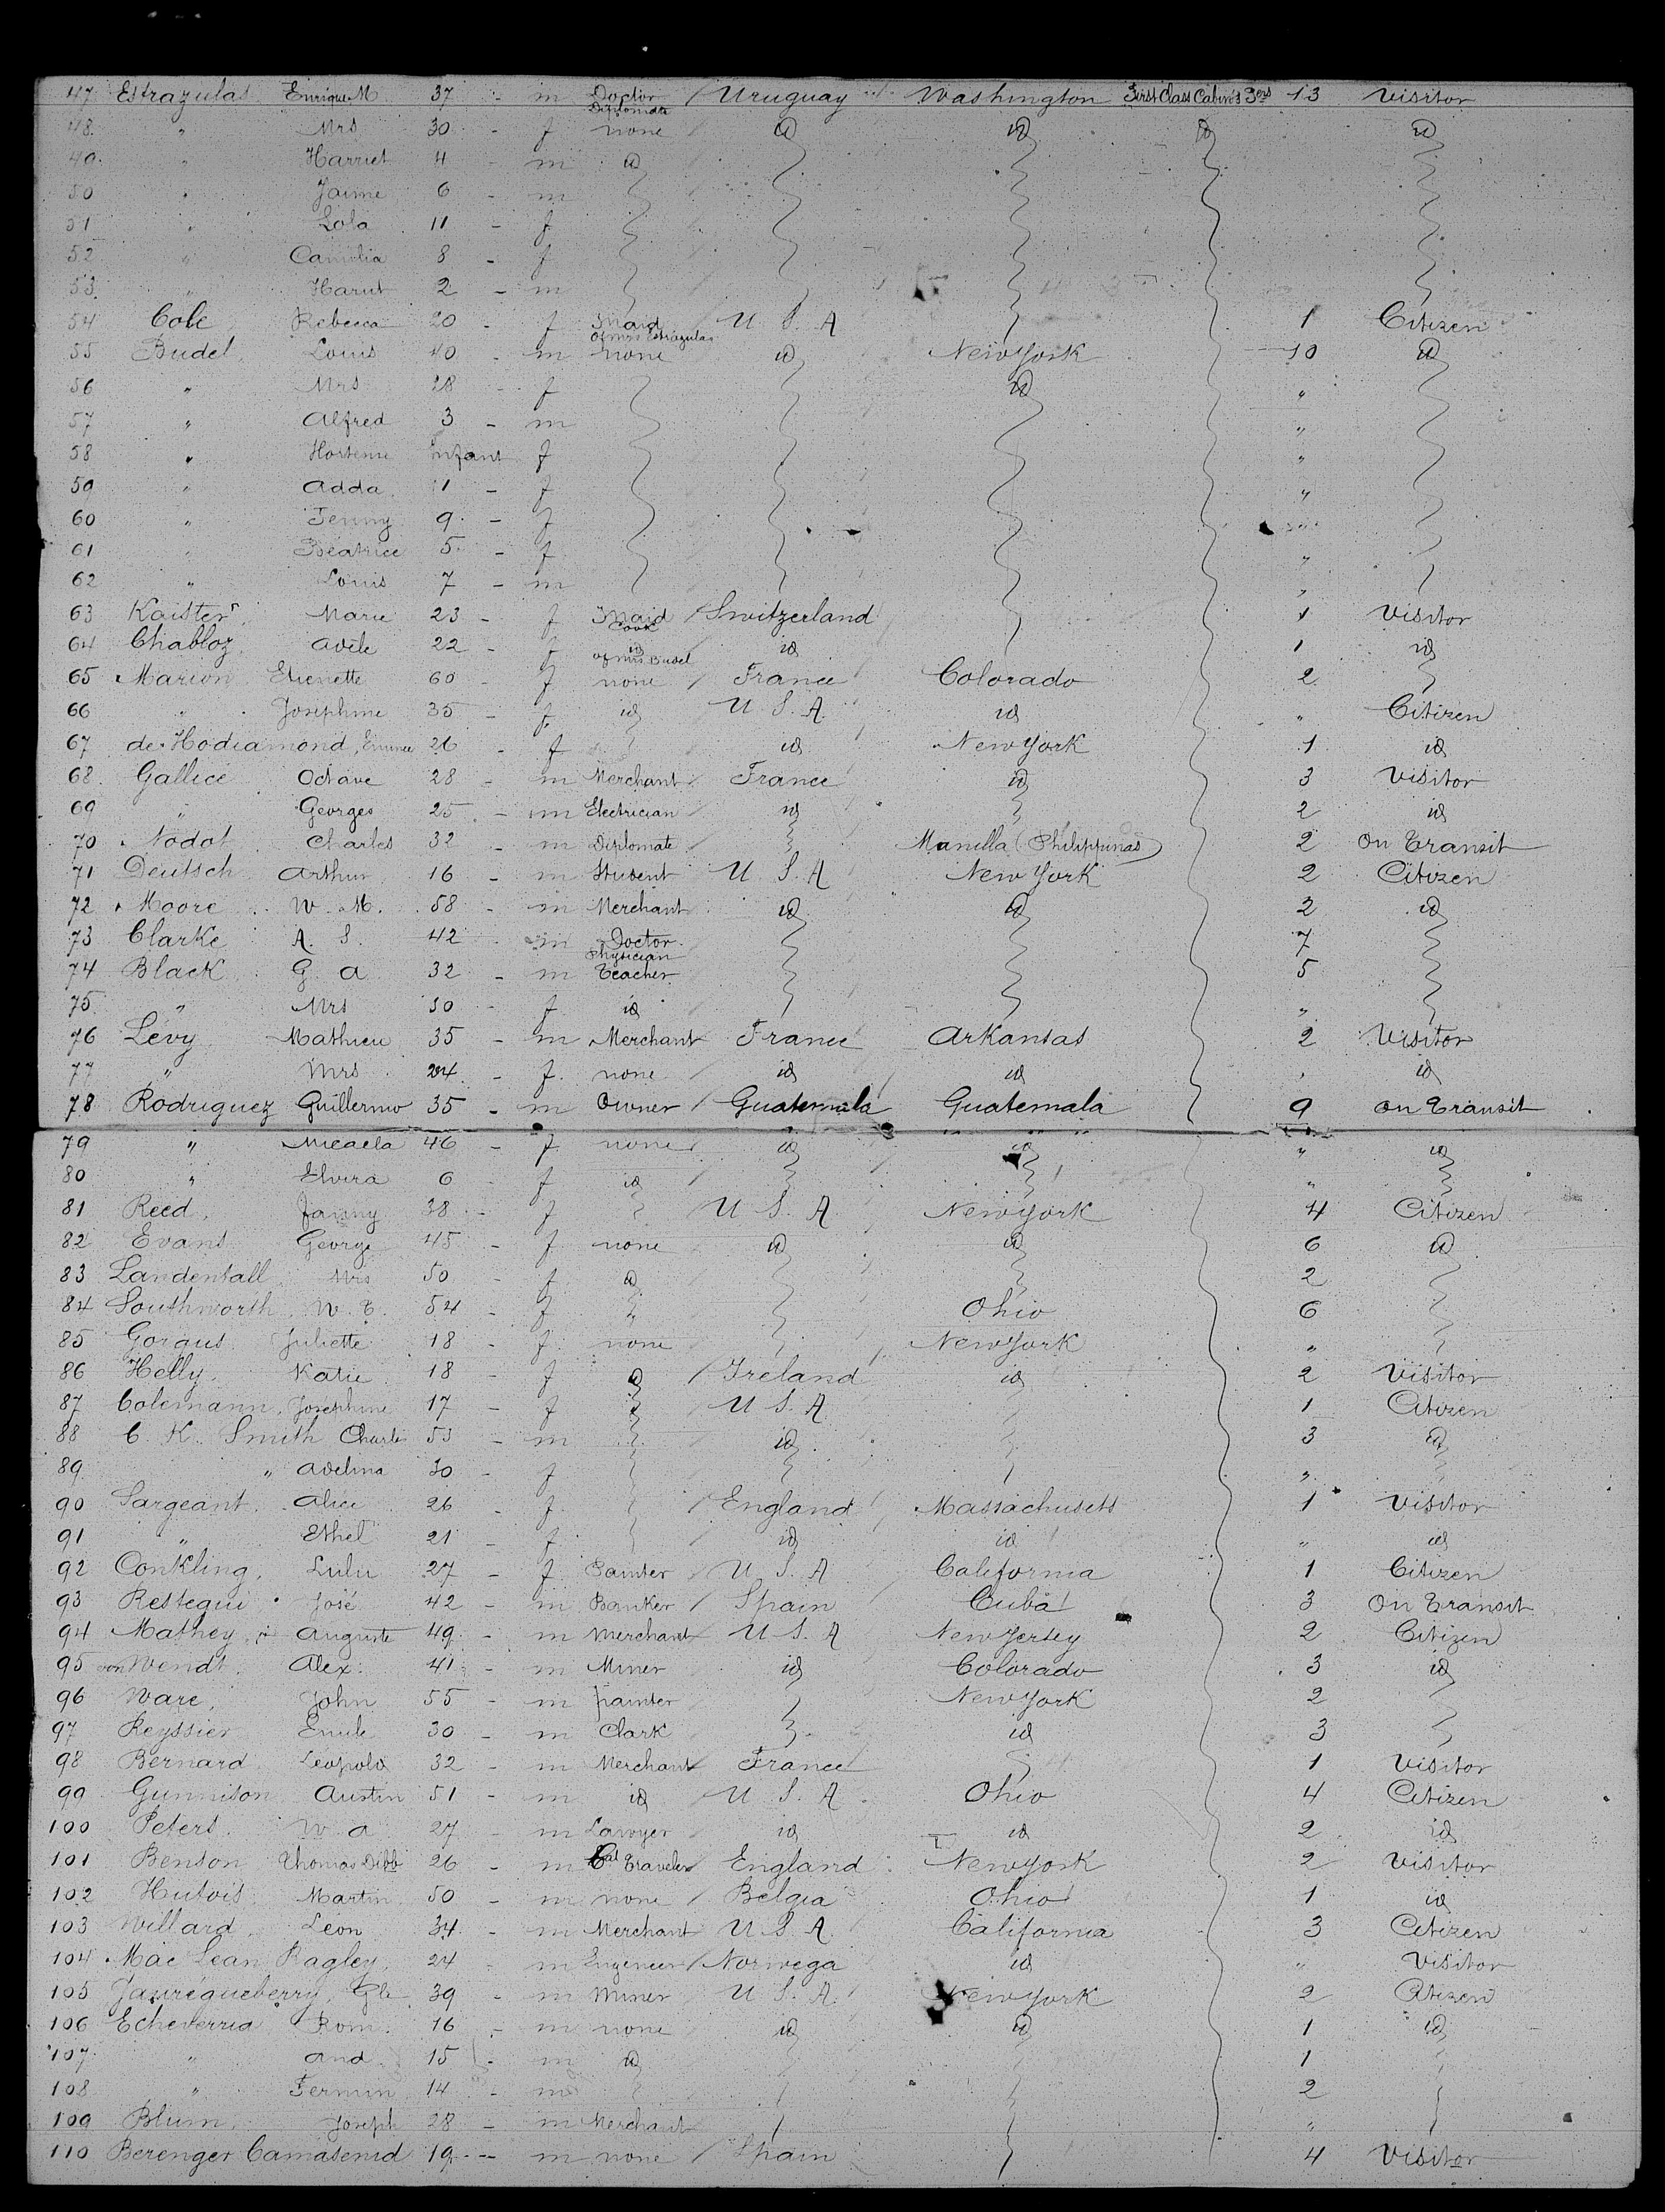 47 Estrazulas Enrique M 37 - m Doctor Diplomate / Uruguay Washington First Class Cabin's Pers 13 Visitor
48 " Mrs 30 - f none id id id id
49 " Harriet 4 - m id
50 " Jaime 6 - m
51 " Lola 11 - f
52 " Camilia 8 - f
53 " 2 - m
54 Cole Rebecca 20 - f Maid of Mrs Estrazulas U. S. A 1 Citizen
55 Budel Louis 40 - m none id New York 10 id
56 " Mrs 28 - f id "
57 " Alfred 3 - m "
58 " Hortense Infant f "
59 " Adda 11 - f "
60 " Fenny 9 - f "
61 " Béatrice 5 - f "
62 " Louis 7 - m "
63 Kaister Marie 23 - f Maid Cook / Switzerland 1 Visitor
64 Chabloz Adèle 22 - f id of Mrs Budel id 1 id
65 Marion Etienette 60 - f none / France Colorado 2
66 " Josephine 35 - f id U. S. A. id " Citizen
67 de Hodiamond, 26 - f id New York 1 id
68 Gallice Octave 28 - m Merchant / France id 3 Visitor
69 " Georges 25 - m Electrician id 2 id
70 Nodot Charles 32 - m Diplomate Manilla (Philippinas) 2 On Transit
71 Deutsch Arthur 16 - m Student U. S. A New York 2 Citizen
72 Moore W. M. 58 - m Merchant id id 2 id
73 Clarke A. S. 42 - m Doctor Physician 7
74 Black G. A 32 - m Teacher 5
75 " Mrs 30 - f id "
76 Levy Mathieu 35 - m Merchant France Arkansas 2 Visitor
77 " Mrs 24 - f. none id id " id
78 Rodriguez Guillermo 35 - m Owner / Guatemala Guatemala 9 On Transit
79 " Micaela 46 - f none id id " id
80 " Elvira 6 - f id "
81 Reed, Fanny 38 - f U. S. A. New York 4 Citizen
82 Evans George 45 - f none id id 6 id
83 Landentall Mrs 50 - f id 2
84 Southworth W. E. 54 - f " Ohio 6
85 Gorgus Juliette 18 - f none New York "
86 Helly, Katie 18 - f id / Ireland id 2 Visitor
87 Colemann, Josephine 17 - f U. S. A 1 Citizen
88 C. K. Smith Charle 53 - m id 3 id
89 " Adelina 30 - f "
90 Sargeant. Alice 26 - f / England Massachusets 1 Visitor
91 " Ethel 21 - f id id " id
92 Conkling, Lulu 27 - f Painter U. S. A California 1 Citizen
93 Restegui José 42 - m Banker / Spain Cuba 3 On Transit
94 Mathey, Auguste 49 - m Merchant U. S. A New Jersey 2 Citizen
95 von Wendt Alex. 41 - m Miner id Colorado 3 id
96 Ware, John 55 - m painter New York 2
97 Reyssier Emile 30 - m Clark id 3
98 Bernard Leopold 32 - m Merchant France 1 Visitor
99 Gunnison Austin 51 - m id U. S. A. Ohio 4 Citizen
100 Peters W. A 27 - m Lawyer id id 2 id
101 Benson Thomas Dibb 26 - m Cal Traveler England New York 2 Visitor
102 Hutois Martin 50 - m none / Belgia Ohio 1 id
103 Willard Léon 34 - m Merchant U. S. A. California 3 Citizen
104 Mac Lean Ragley, 24 - m Engeneer / Norwega id " Visitor
105 Jauregueberry, 39 - m Miner U. S. A. New York 2 Citizen
106 Echeverria Rom. 16 - m none id id 1 id
107 " And 15 - m id 1
108 " Fermin 14 - m 2
109 Blum, Joseph 28 - m Merchant "
110 Berenger Camasenid 19 - m none / Spain 4 Visitor